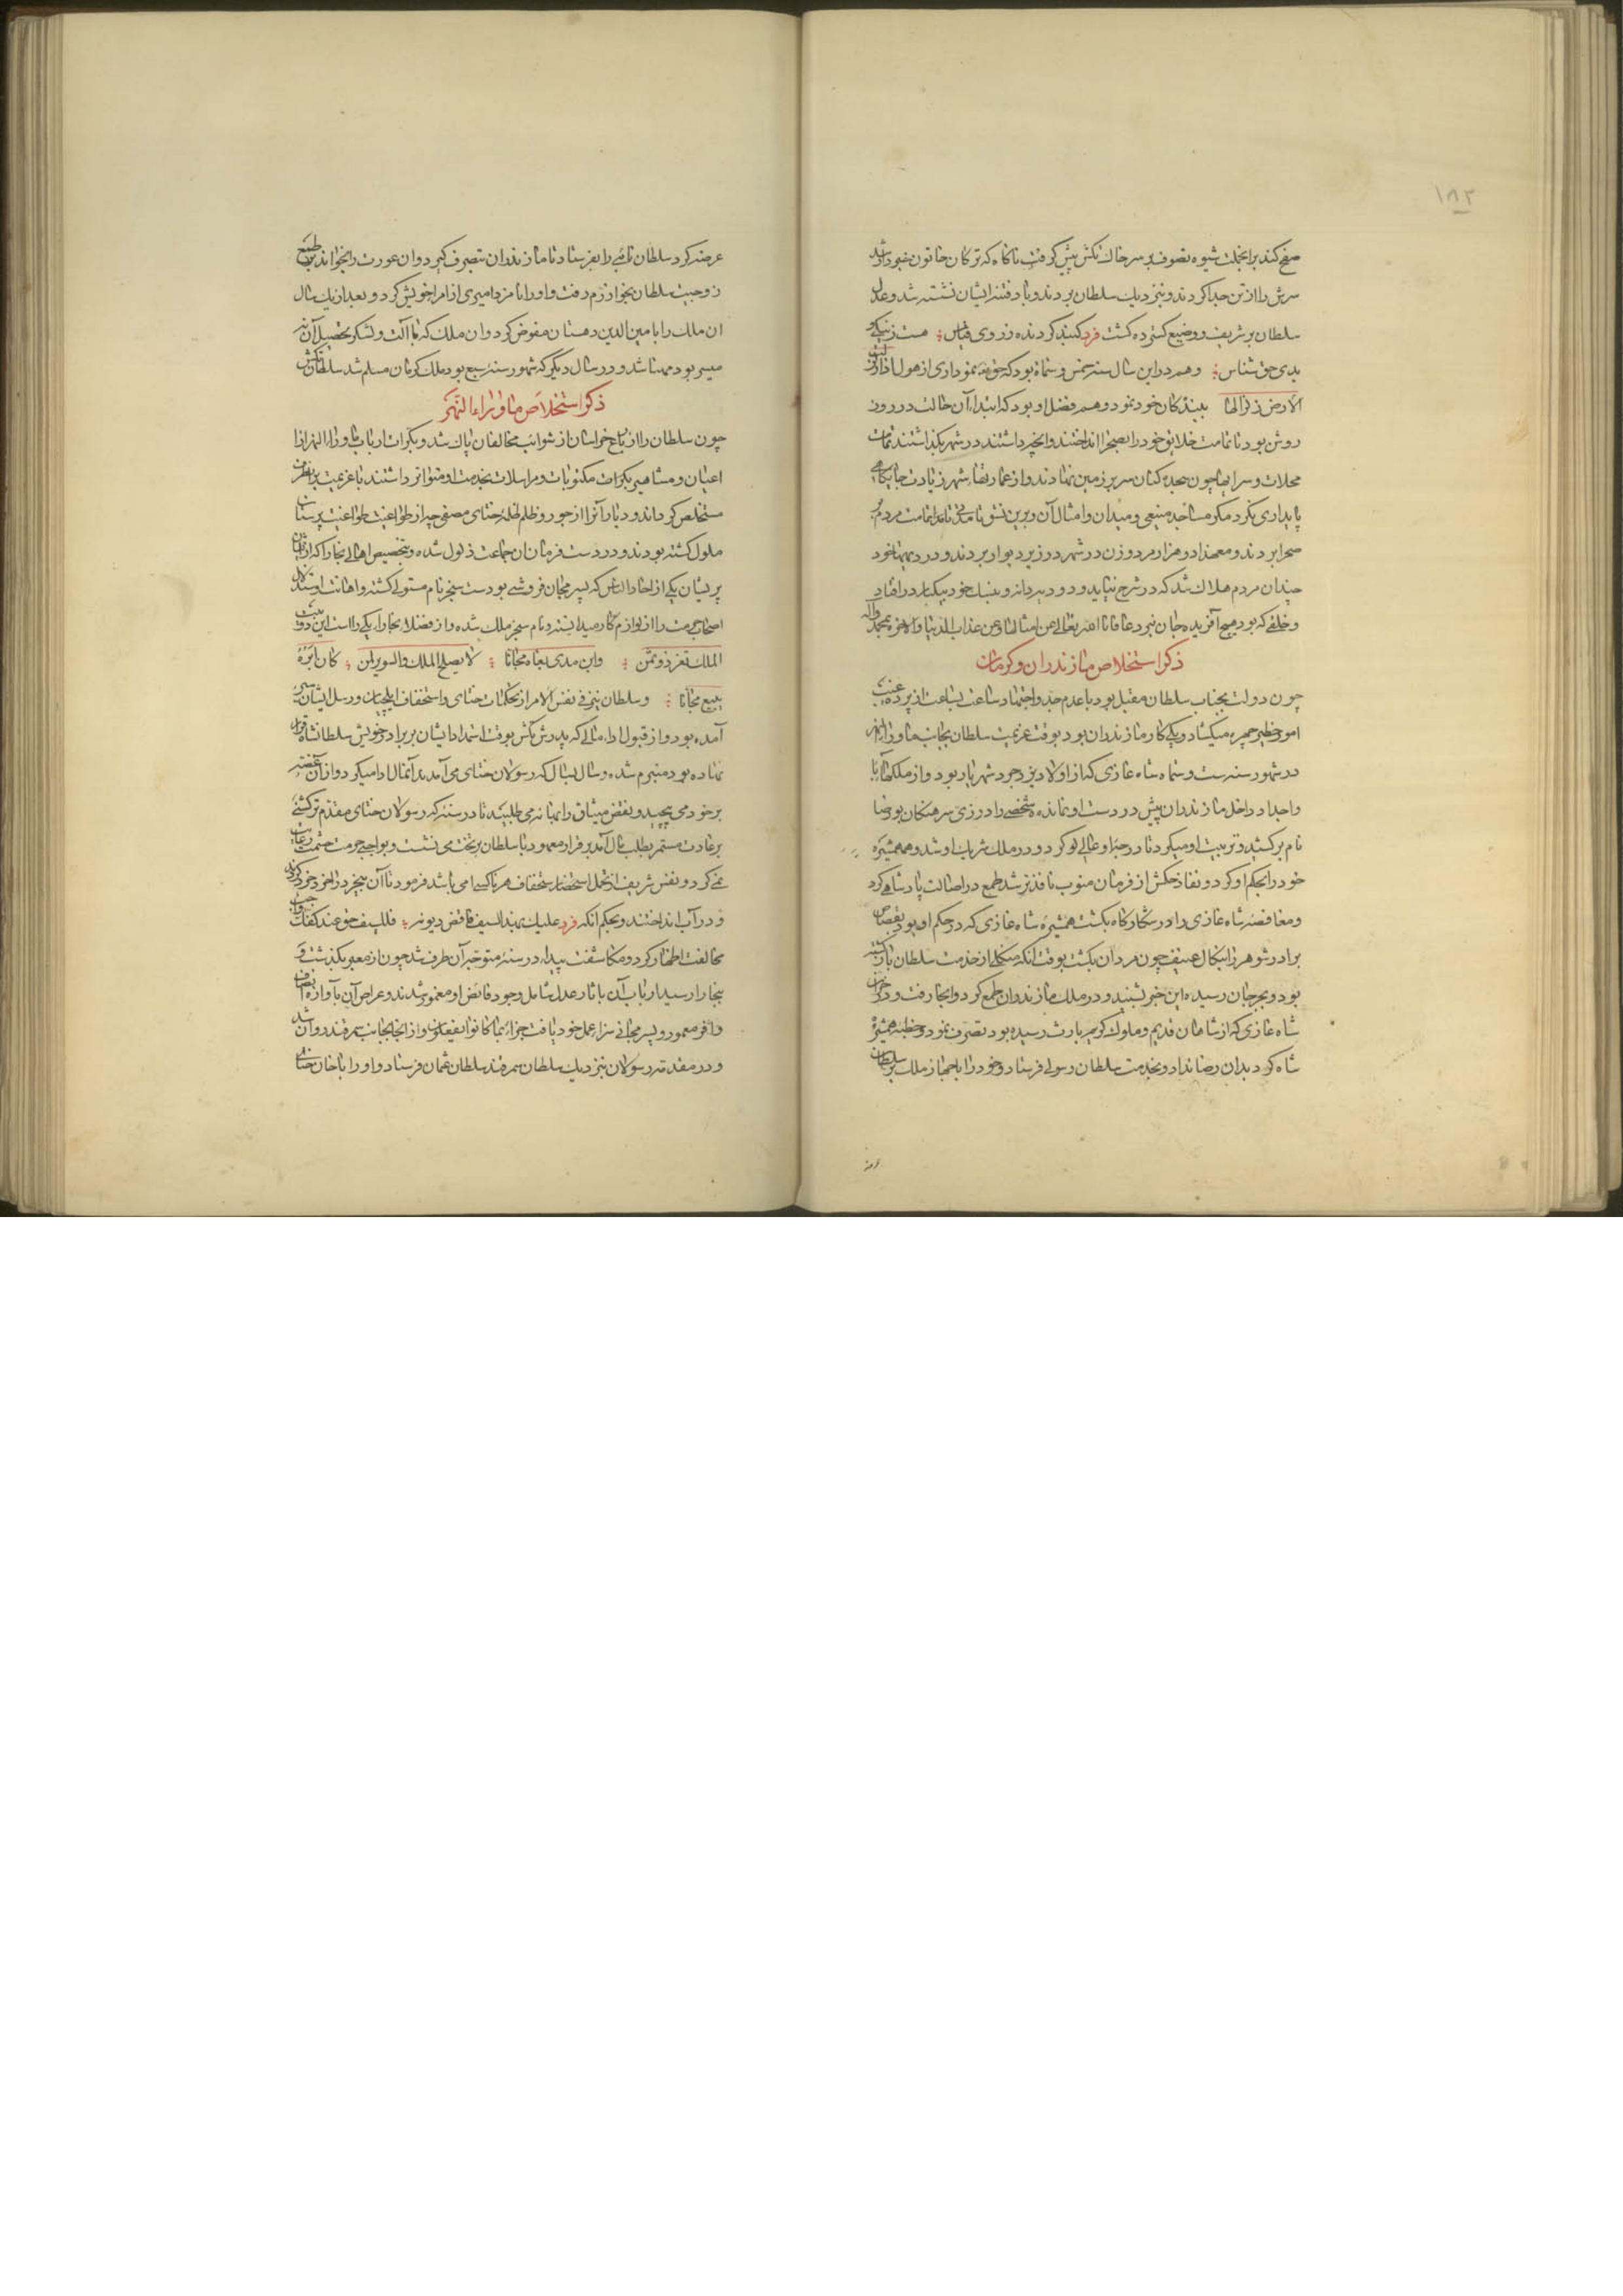 ۱۸۲
صفح کند بر انجلت شیوه تصوف بر سر خاک تکش پیش گرفت ناگاه که ترکان خاتون فرمود تا
سرش را از تن جدا کردند و بنزدیک سلطان بردند و باد فتنه ایشان نشسته شد و عدل
سلطان بر شریف و وضیع گسترده گشت فرد کنند کرد نده ز روی قیاس هست ز نیکی و
بدی حق شناس وهم در این سال سنه خمس و ستمایه بود که حق نموداری از هول اذا زلزلت
الارض زلزالها ببندگان خود نمود و هم فضل او بود که ابتدا آن حالت در روز
روشن بود تا تمامت خلایق خود را بصحرا انداختند و آنچه داشتند در شهر بگذاشتند تمامت
محلات و سرایها چون سجده کنان سر بر زمین نهادند و از عمارتهاء شهر زیادت جایگاهی
پایداری نکرد مگر مساجد منیعی و میدان و امثال آن و برین نسق تا مدتی تمامت مردم
صحرا بردند و معهذا دو هزار مرد و زن در شهر در زیر دیوار بردند و در دیهها خود
چندان مردم هلاک شد که در شرح نیاید و دو دیه دانه و بنیک خود بیکبار در افتاد
و خلقی که بود هیچ آفریده جان نبرد عافانا الله تعالی عن امثالها و عن عذاب الدنیا والاخره بمحمد و اله
ذکر استخلاص مازندران و کرمان
چون دولت بجناب سلطان مقبل بود با عدم جد و اجتهاد ساعت بساعت از پرده غیب
امور خطیر چهره میگشاد و یکی کار مازندران بود بوقت عزیمت سلطان بجانب ماوراالنهر
در شهور سنه ست و ستمایه شاه غازی که از اولاد یزدجرد شهریار بود و از ملکهاء آبا
و اجداد داخل مازندران بیش در دست او نمانده شخصی را در زی سرهنگان بو رضا
نام برکشید و تربیت او میکرد تا درجه او عالی لو کرد و در ملک شریک او شد و همشیره
خود را بحکم او کرد و نفاذ حکمش از فرمان منوب نافذتر شد طمع در اصالت پادشاهی کرد
و مغافصه شاه غازی را در شکارگاه بکشت همشیره شاه غازی که در حکم او بود بقصاص
برادر شوهر را بنکال عنیف چون مردان بکشت بوقت آنکه منکلی از خدمت سلطان بازگشته
بود و بجرجان رسیده این خبر بشنید و در ملک مازندران طمع کرد و آنجا رفت و در خزاین
شاه غازی که از شاهان قدیم و ملوک کریم بارث رسیده بود تصرف نمود و خطبه همشیره
شاه کرد بدان رضا نداد و بخدمت سلطان رسولی فرستاد و خود را با جهاز ملک بر سلطان
عرضه کرد سلطان نائبی را بفرستاد تا مازندران بتصرف گیرد و ان عورت را بخواند بر طمع
زوجیت سلطان بخوارزم رفت و او را نامزد امیری از امراء خویش کرد و بعد از یک سال
ان ملک را با مین الدین دهستان مفوض کرد و ان ملک که با آلت و لشکر تحصیل آن نه
میسر بود مهنا شد و در سال دیگر که شهور سنه سبع بود ملک کرمان مسلم شد سلطان تکش
ذکر استخلاص ماوراء النهر
چون سلطان را از رباع خراسان از شوائب مخالفان پاک شد و بکرات ارباب ماوراءالنهر از
اعیان و مشاهیر بکرات مکتوبات و مراسلات بخدمت او متواتر داشتند تا عزیمت بران طرف
مستخلص گرداند و دیار آنرا از جور و ظلم ظلمه ختای مصفی چه از طواعیت طواغیت پرستان
ملول گشته بودند و در دست فرمان ان جماعت ذلول شده و بتخصیص اهالی بخارا که از ایشان
پریشان یکی از احاد الناس که پسر مجان فروشی بود ست سنجر نام مستولی گشته و اهانت و استذلال
اصحاب حرمت را از لوازم کار میدانسته و نام سنجر ملک شده و از فضلاء بخارا یکی راست این دو بیت
الملک نغر ذو ثمن وابن مدی بغاه مجانا لا یصلح الملک والسریر لمن کان ابوه
یبیع مجانا و سلطان نیز فی نفس الامر از تحکمات ختای و استخفاف ایلچیان و رسل ایشان سیر
آمده بود و از قبول اداء مالی که پدرش تکش بوقت استمداد ایشان بر برادر خویش سلطانشاه قرار
نهاده بود متبرم شده و سال بسال که رسولان ختای می آمدند آنمال ادا میکرد و از آن غصه
بر خود می پیچید و نقض میثاق را بهانه می طلبید تا در سنه که رسولان ختای مقدم ترکشی
بر عادت مستمر بطلب مال آمد بر قرار معهود با سلطان بر تخت می نشست و بواجبی حرمت حشمت رعایت
نمی کرد و نفس شریف از تحمل استحضار استخفاف هر ناکسی ابا می باشد فرمود تا آن بیخرد را خرد خرد کردند
و در آب انداختند و بحکم انکه فرد علیک بهذا السیف فاقض دیونه فللسیف حق عند کفک واجب
مخالفت اظهار کرد و مکاشفت پیدا در سنه متوجه آن طرف شد چون از معبر بگذشت و
ببخارا رسید ارباب آن بآثار عدل شامل و جود فایض او مغمور شدند و عراص آن بآوازه انصاف
وافر معمور و پسر مجانی سزاء عمل خود یافت جزاء بما کانوا یفعلون و از انجا بجانب سمرقند روان شد
و در مقدمه رسولان بنزدیک سلطان سمرقند سلطان عثمان فرستاد و او را با خان ختای
عرضه